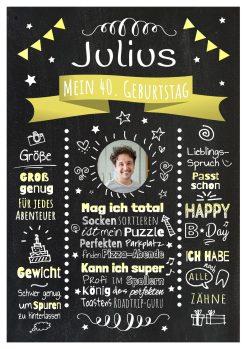 Julius
Mein 40. Geburtstag
Größe
GROß
genug
FÜR JEDES
ABENTEUER
Gewicht
Schwer genug,
um Spuren
zu hinterlassen
Mag ich total
Socken SORTIEREN
ist mein PUZZLE
Perfekten Parkplatz
finden Pizza-Abende
Kann ich super
Profi im Spoilern
König des perfekten
Toastens ROADTRIP-GURU
Lieblings-
Spruch
Passt
schon
HAPPY
B-Day
ICH HABE
noch
ALLE
ZÄHNE